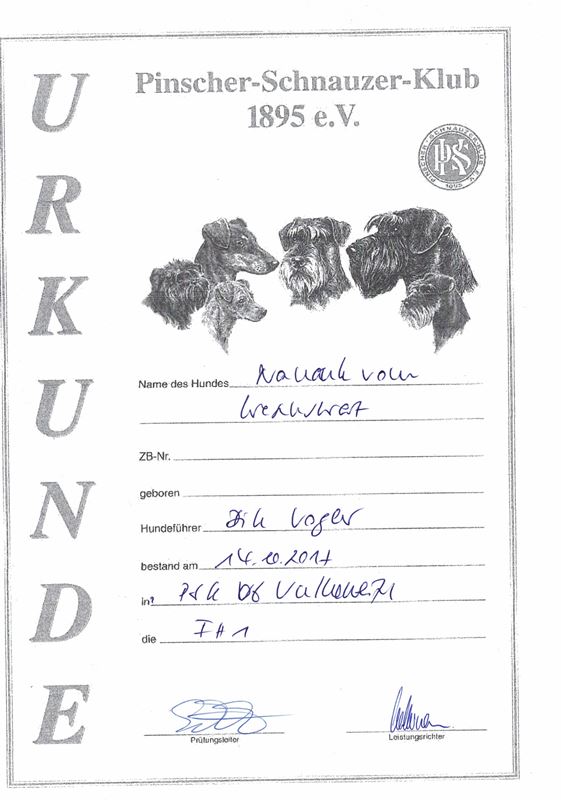 URKUNDE
Pinscher-Schnauzer-Klub
1895 e.V.
PINSCHER-SCHNAUZER-KLUB E.V.
PSK
1895
Name des Hundes vom
ZB-Nr.
geboren
Hundeführer Dirk Vogler
bestand am 14.10.2017
in: PSK OG
die IH1
Prüfungsleiter
Leistungsrichter